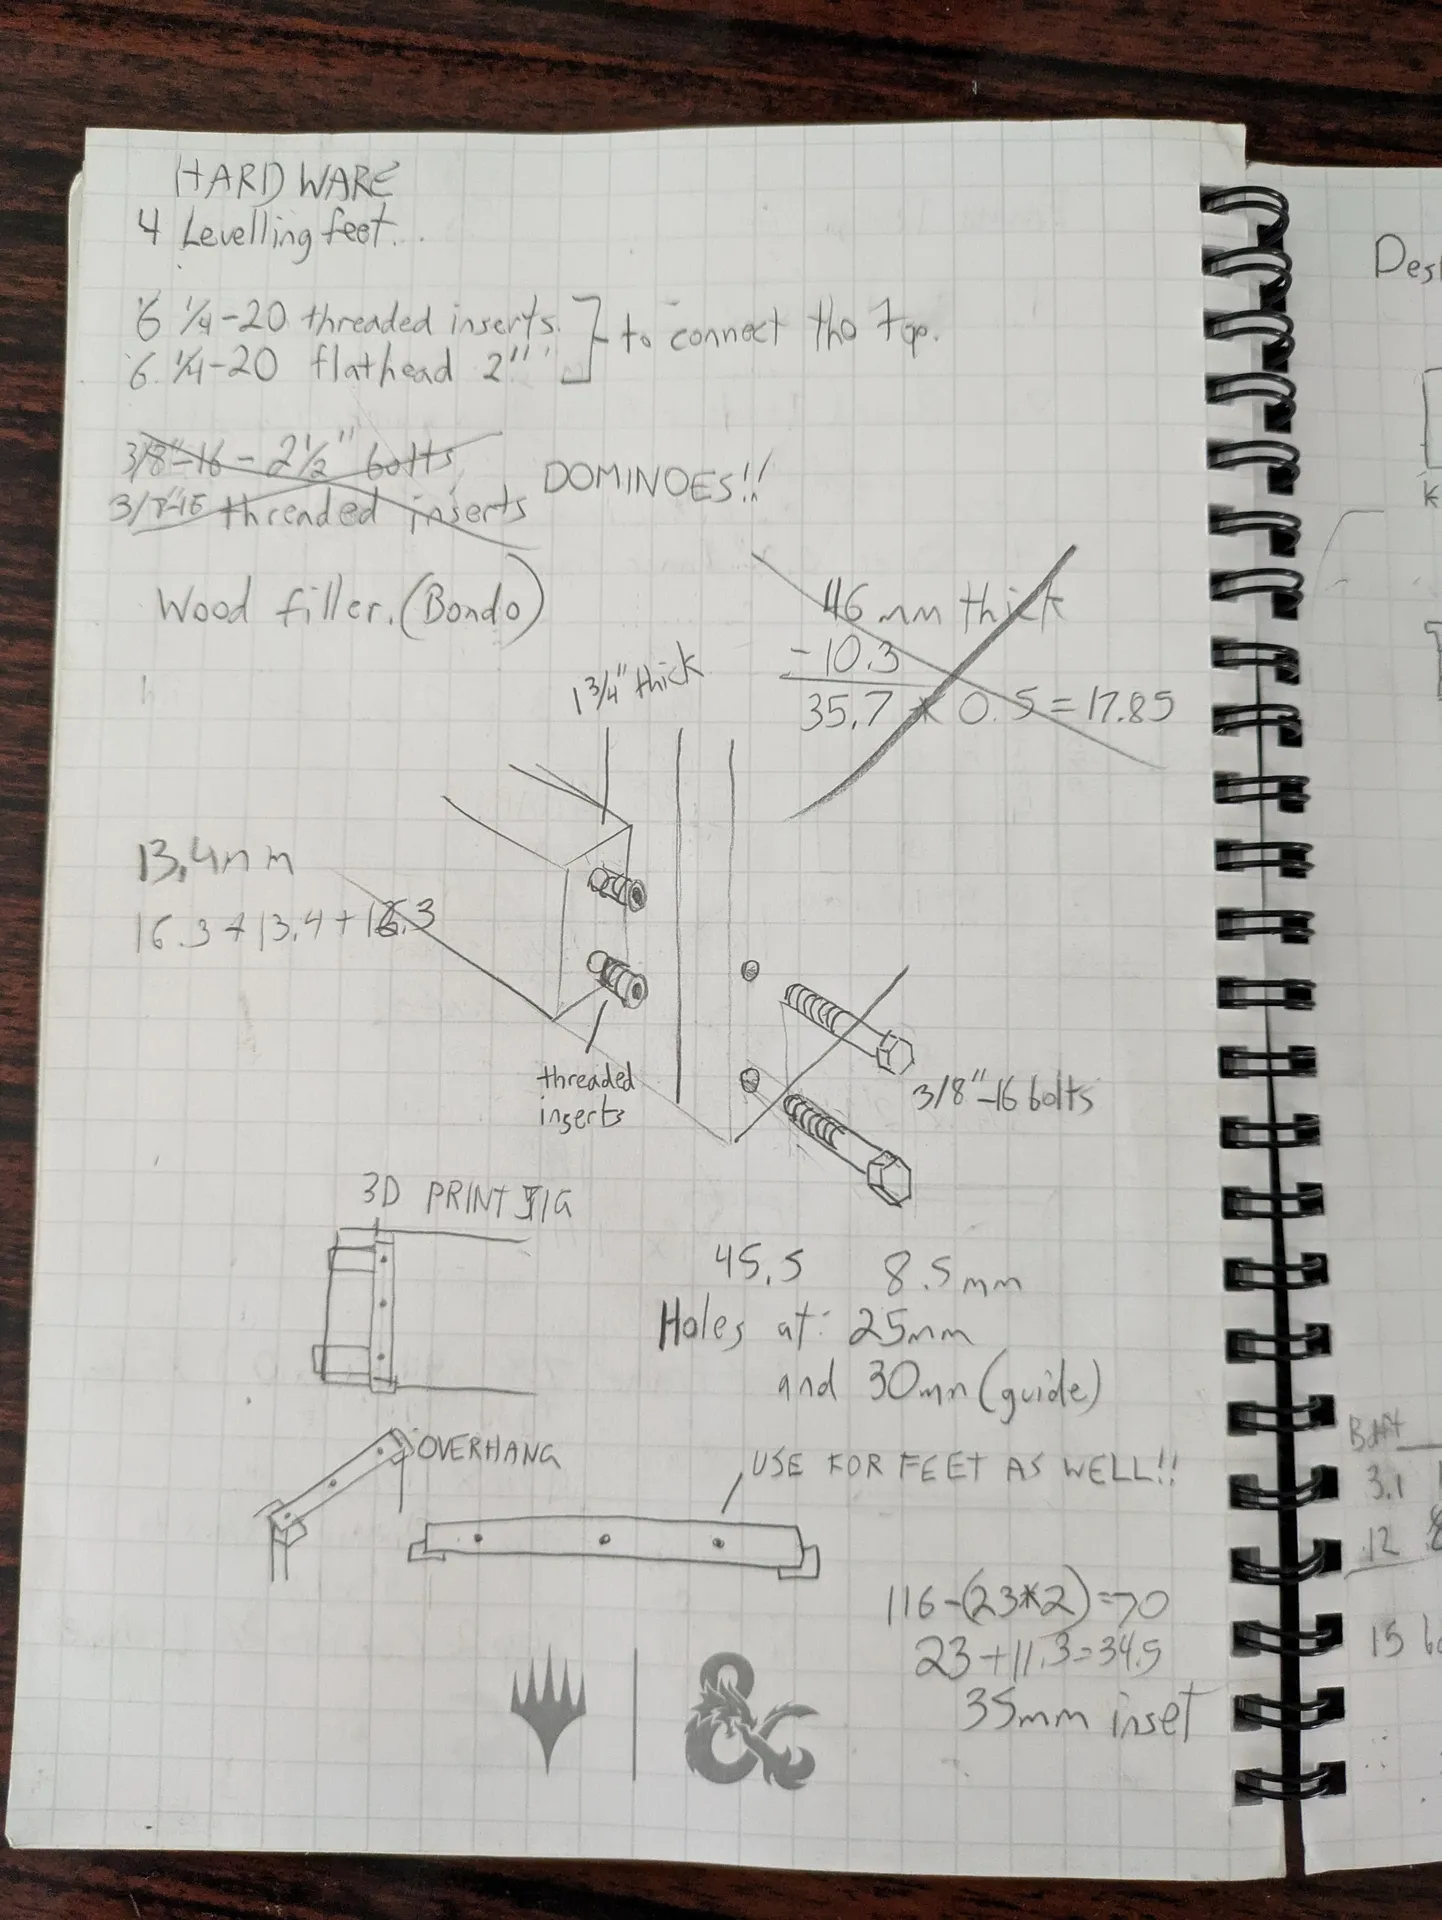 HARDWARE
4 Levelling feet...
6 1/4-20 threaded inserts.
6 1/4-20 flathead 2"
to connect the top.
3/8"-16 - 2 1/2" bolts
3/8"-16 threaded inserts
DOMINOES!!
Wood filler. (Bondo)
46 mm thick
- 10.3
35.7 * 0.5 = 17.85
1 3/4" thick
13.4mm
16.3 + 13.4 + 16.3
threaded
inserts
3/8"-16 bolts
3D PRINT JIG
45.5 8.5mm
Holes at: 25mm
and 30mm (guide)
OVERHANG
USE FOR FEET AS WELL!!
116-(23*2)=70
23+11.3=34.5
35mm inset
3.1
.12
15